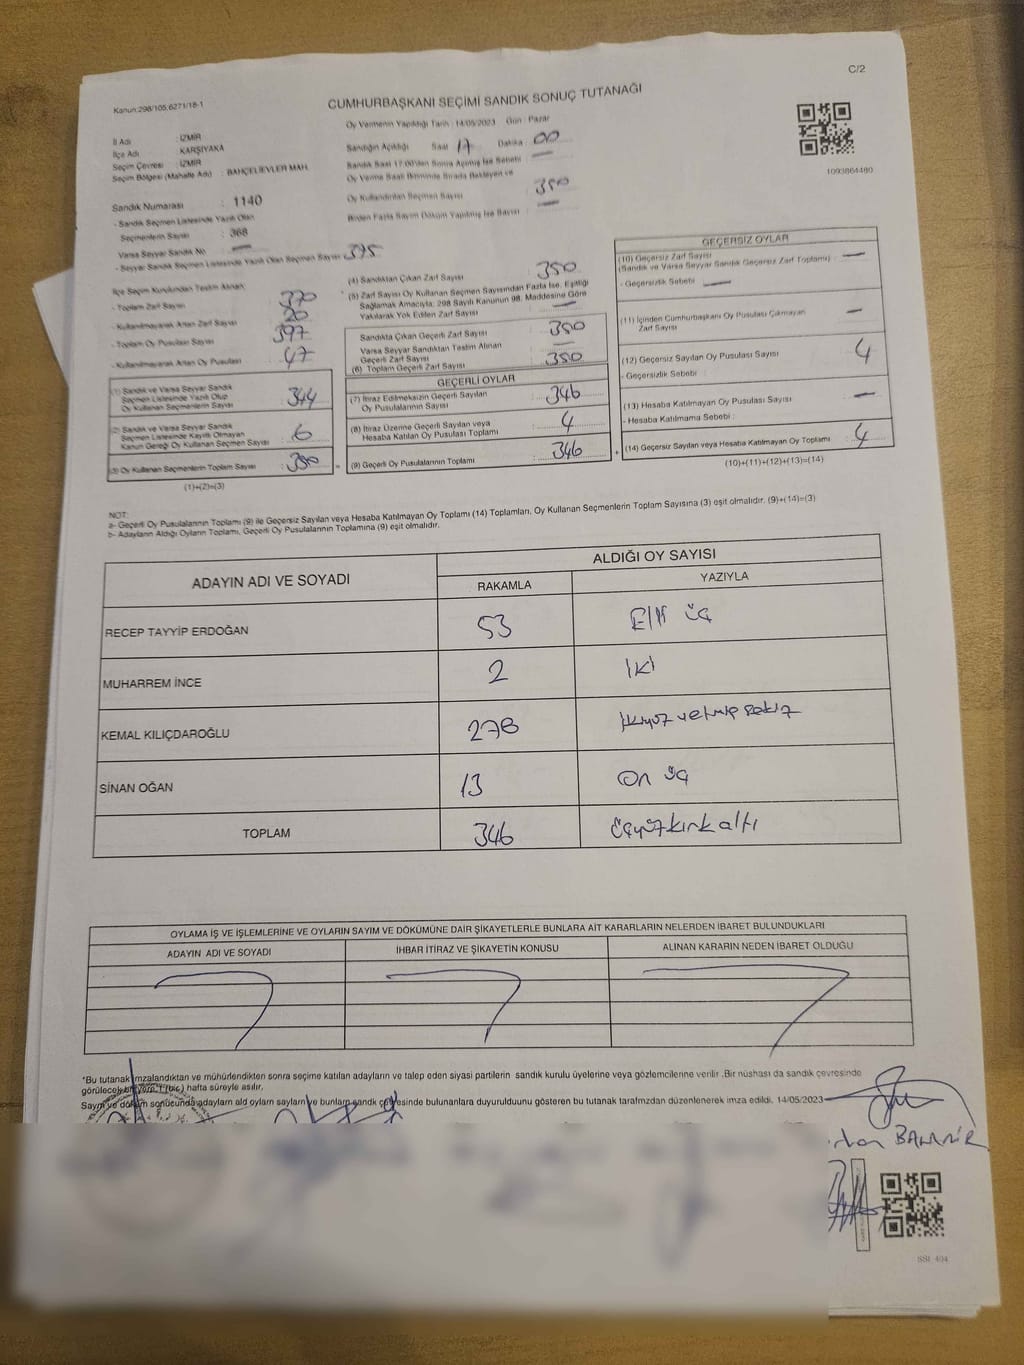 C/2
Kanun:298/105.6271/18-1
CUMHURBAŞKANI SEÇİMİ SANDIK SONUÇ TUTANAĞI
Oy Vermenin Yapıldığı Tarih : 14/05/2023 Gün : Pazar
İl Adı : İZMİR
İlçe Adı : KARŞIYAKA
Seçim Çevresi : İZMİR
Seçim Bölgesi (Mahalle Adı) : BAHÇELİEVLER MAH.
Sandığın Açıldığı Saat 17 Dakika : 00
Sandık Saat 17:00'den Sonra Açılmış İse Sebebi : —
Oy Verme Saati Bitiminde Sırada Bekleyen ve
Oy Kullandırılan Seçmen Sayısı : 350
Birden Fazla Sayım Döküm Yapılmış İse Sayısı : —
1093864480
Sandık Numarası : 1140
- Sandık Seçmen Listesinde Yazılı Olan
Seçmenlerin Sayısı : 368
Varsa Seyyar Sandık No : —
- Seyyar Sandık Seçmen Listesinde Yazılı Olan Seçmen Sayısı
İlçe Seçim Kurulundan Teslim Alınan:
- Toplam Zarf Sayısı : 370
- Kullanılmayarak Artan Zarf Sayısı : 20
- Toplam Oy Pusulası Sayısı : 397
- Kullanılmayarak Artan Oy Pusulası : 47
(1) Sandık ve Varsa Seyyar Sandık
Seçmen Listesinde Yazılı Olup
Oy Kullanan Seçmenlerin Sayısı : 344
(2) Sandık ve Varsa Seyyar Sandık
Seçmen Listesinde Kayıtlı Olmayan
Kanun Gereği Oy Kullanan Seçmen Sayısı : 6
(3) Oy Kullanan Seçmenlerin Toplam Sayısı : 350
(1)+(2)=(3)
(4) Sandıktan Çıkan Zarf Sayısı : 350
(5) Zarf Sayısı Oy Kullanan Seçmen Sayısından Fazla İse, Eşitliği
Sağlamak Amacıyla, 298 Sayılı Kanunun 98. Maddesine Göre
Yakılarak Yok Edilen Zarf Sayısı : —
Sandıkta Çıkan Geçerli Zarf Sayısı : 350
Varsa Seyyar Sandıktan Teslim Alınan
Geçerli Zarf Sayısı : —
(6) Toplam Geçerli Zarf Sayısı : 350
GEÇERLİ OYLAR
(7) İtiraz Edilmeksizin Geçerli Sayılan
Oy Pusulalarının Sayısı : 346
(8) İtiraz Üzerine Geçerli Sayılan veya
Hesaba Katılan Oy Pusulası Toplamı : 4
(9) Geçerli Oy Pusulalarının Toplamı : 346
GEÇERSİZ OYLAR
(10) Geçersiz Zarf Sayısı : —
(Sandık ve Varsa Seyyar Sandık Geçersiz Zarf Toplamı)
- Geçersizlik Sebebi : —
(11) İçinden Cumhurbaşkanı Oy Pusulası Çıkmayan
Zarf Sayısı : —
(12) Geçersiz Sayılan Oy Pusulası Sayısı : 4
- Geçersizlik Sebebi :
(13) Hesaba Katılmayan Oy Pusulası Sayısı : —
- Hesaba Katılmama Sebebi :
(14) Geçersiz Sayılan veya Hesaba Katılmayan Oy Toplamı : 4
(10)+(11)+(12)+(13)=(14)
NOT:
a- Geçerli Oy Pusulalarının Toplamı (9) ile Geçersiz Sayılan veya Hesaba Katılmayan Oy Toplamı (14) Toplamları, Oy Kullanan Seçmenlerin Toplam Sayısına (3) eşit olmalıdır. (9)+(14)=(3)
b- Adayların Aldığı Oyların Toplamı, Geçerli Oy Pusulalarının Toplamına (9) eşit olmalıdır.
ADAYIN ADI VE SOYADI ALDIĞI OY SAYISI
RAKAMLA YAZIYLA
RECEP TAYYİP ERDOĞAN 53 Elli üç
MUHARREM İNCE 2 İki
KEMAL KILIÇDAROĞLU 278 ikiyüz yetmiş sekiz
SİNAN OĞAN 13 On üç
TOPLAM 346 üçyüzkırkaltı
OYLAMA İŞ VE İŞLEMLERİNE VE OYLARIN SAYIM VE DÖKÜMÜNE DAİR ŞİKAYETLERLE BUNLARA AİT KARARLARIN NELERDEN İBARET BULUNDUKLARI
ADAYIN ADI VE SOYADI İHBAR İTİRAZ VE ŞİKAYETİN KONUSU ALINAN KARARIN NEDEN İBARET OLDUĞU
*Bu tutanak imzalandıktan ve mühürlendikten sonra seçime katılan adayların ve talep eden siyasi partilerin sandık kurulu üyelerine veya gözlemcilerine verilir .Bir nüshası da sandık çevresinde
görülecek bir yere 1 (bir) hafta süreyle asılır.
Sayım ve döküm sonucunda adayların aldı oyların sayları ve bunların sandık çevresinde bulunanlara duyurulduunu gösteren bu tutanak tarafımzdan düzenlenerek imza edildi. 14/05/2023
SSI 404